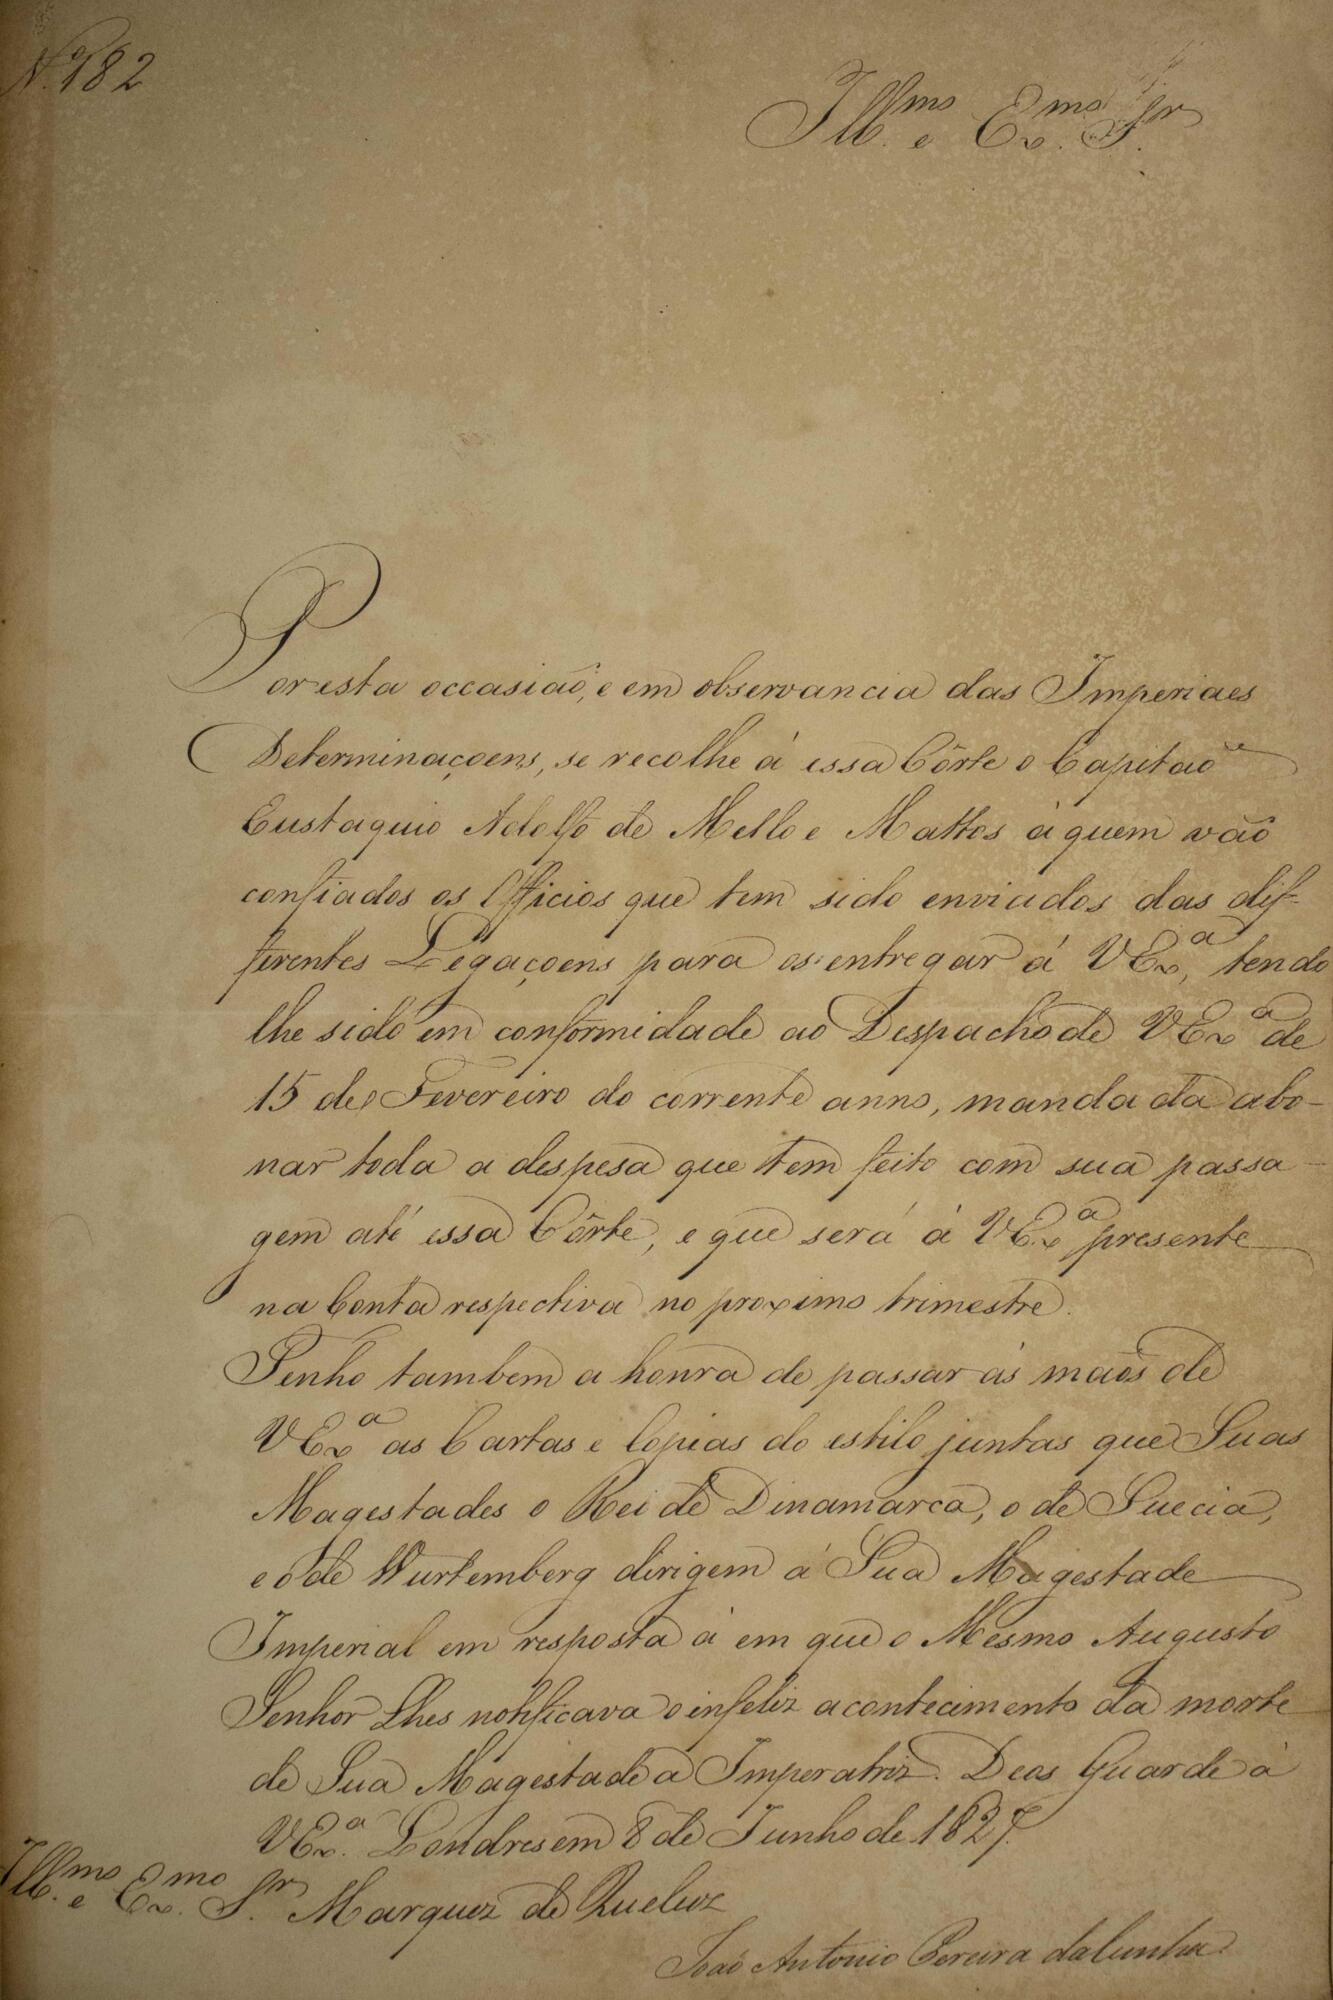 N.º 182
Ill.mo e Ex.mo Sr.
Por esta occasião, e em observancia das Imperiaes
Determinaçoens, se recolhe à essa Côrte o Capitaõ
Eustaquio Adolfo de Mello e Mattos à quem vão
confiados os Officios que tem sido enviados das dif-
ferentes Legaçoens para os entregar á VEx.ª, tendo
lhe sido em conformidade ao Despacho de VEx.ª de
15 de Fevereiro do corrente anno, mandada abo-
nar toda a despesa que tem feito com sua passa-
gem até essa Côrte, e que será á VEx.ª presente
na Conta respectiva no proximo trimestre.
Tenho tambem a honra de passar ás maõs de
VEx.ª as Cartas e Copias do estilo juntas que Suas
Magestades o Rei de Dinamarca, o de Suecia,
e o de Wurtemberg dirigem á Sua Magestade
Imperial em resposta á em que o Mesmo Augusto
Senhor Lhes notificava o infeliz acontecimento da morte
de Sua Magestade a Imperatriz. Deos Guarde à
VEx.ª. Londres em 8 de Junho de 1827.
Ill.mo e Ex.mo Sr. Marquez de Queluz
João Antonio Pereira da Cunha